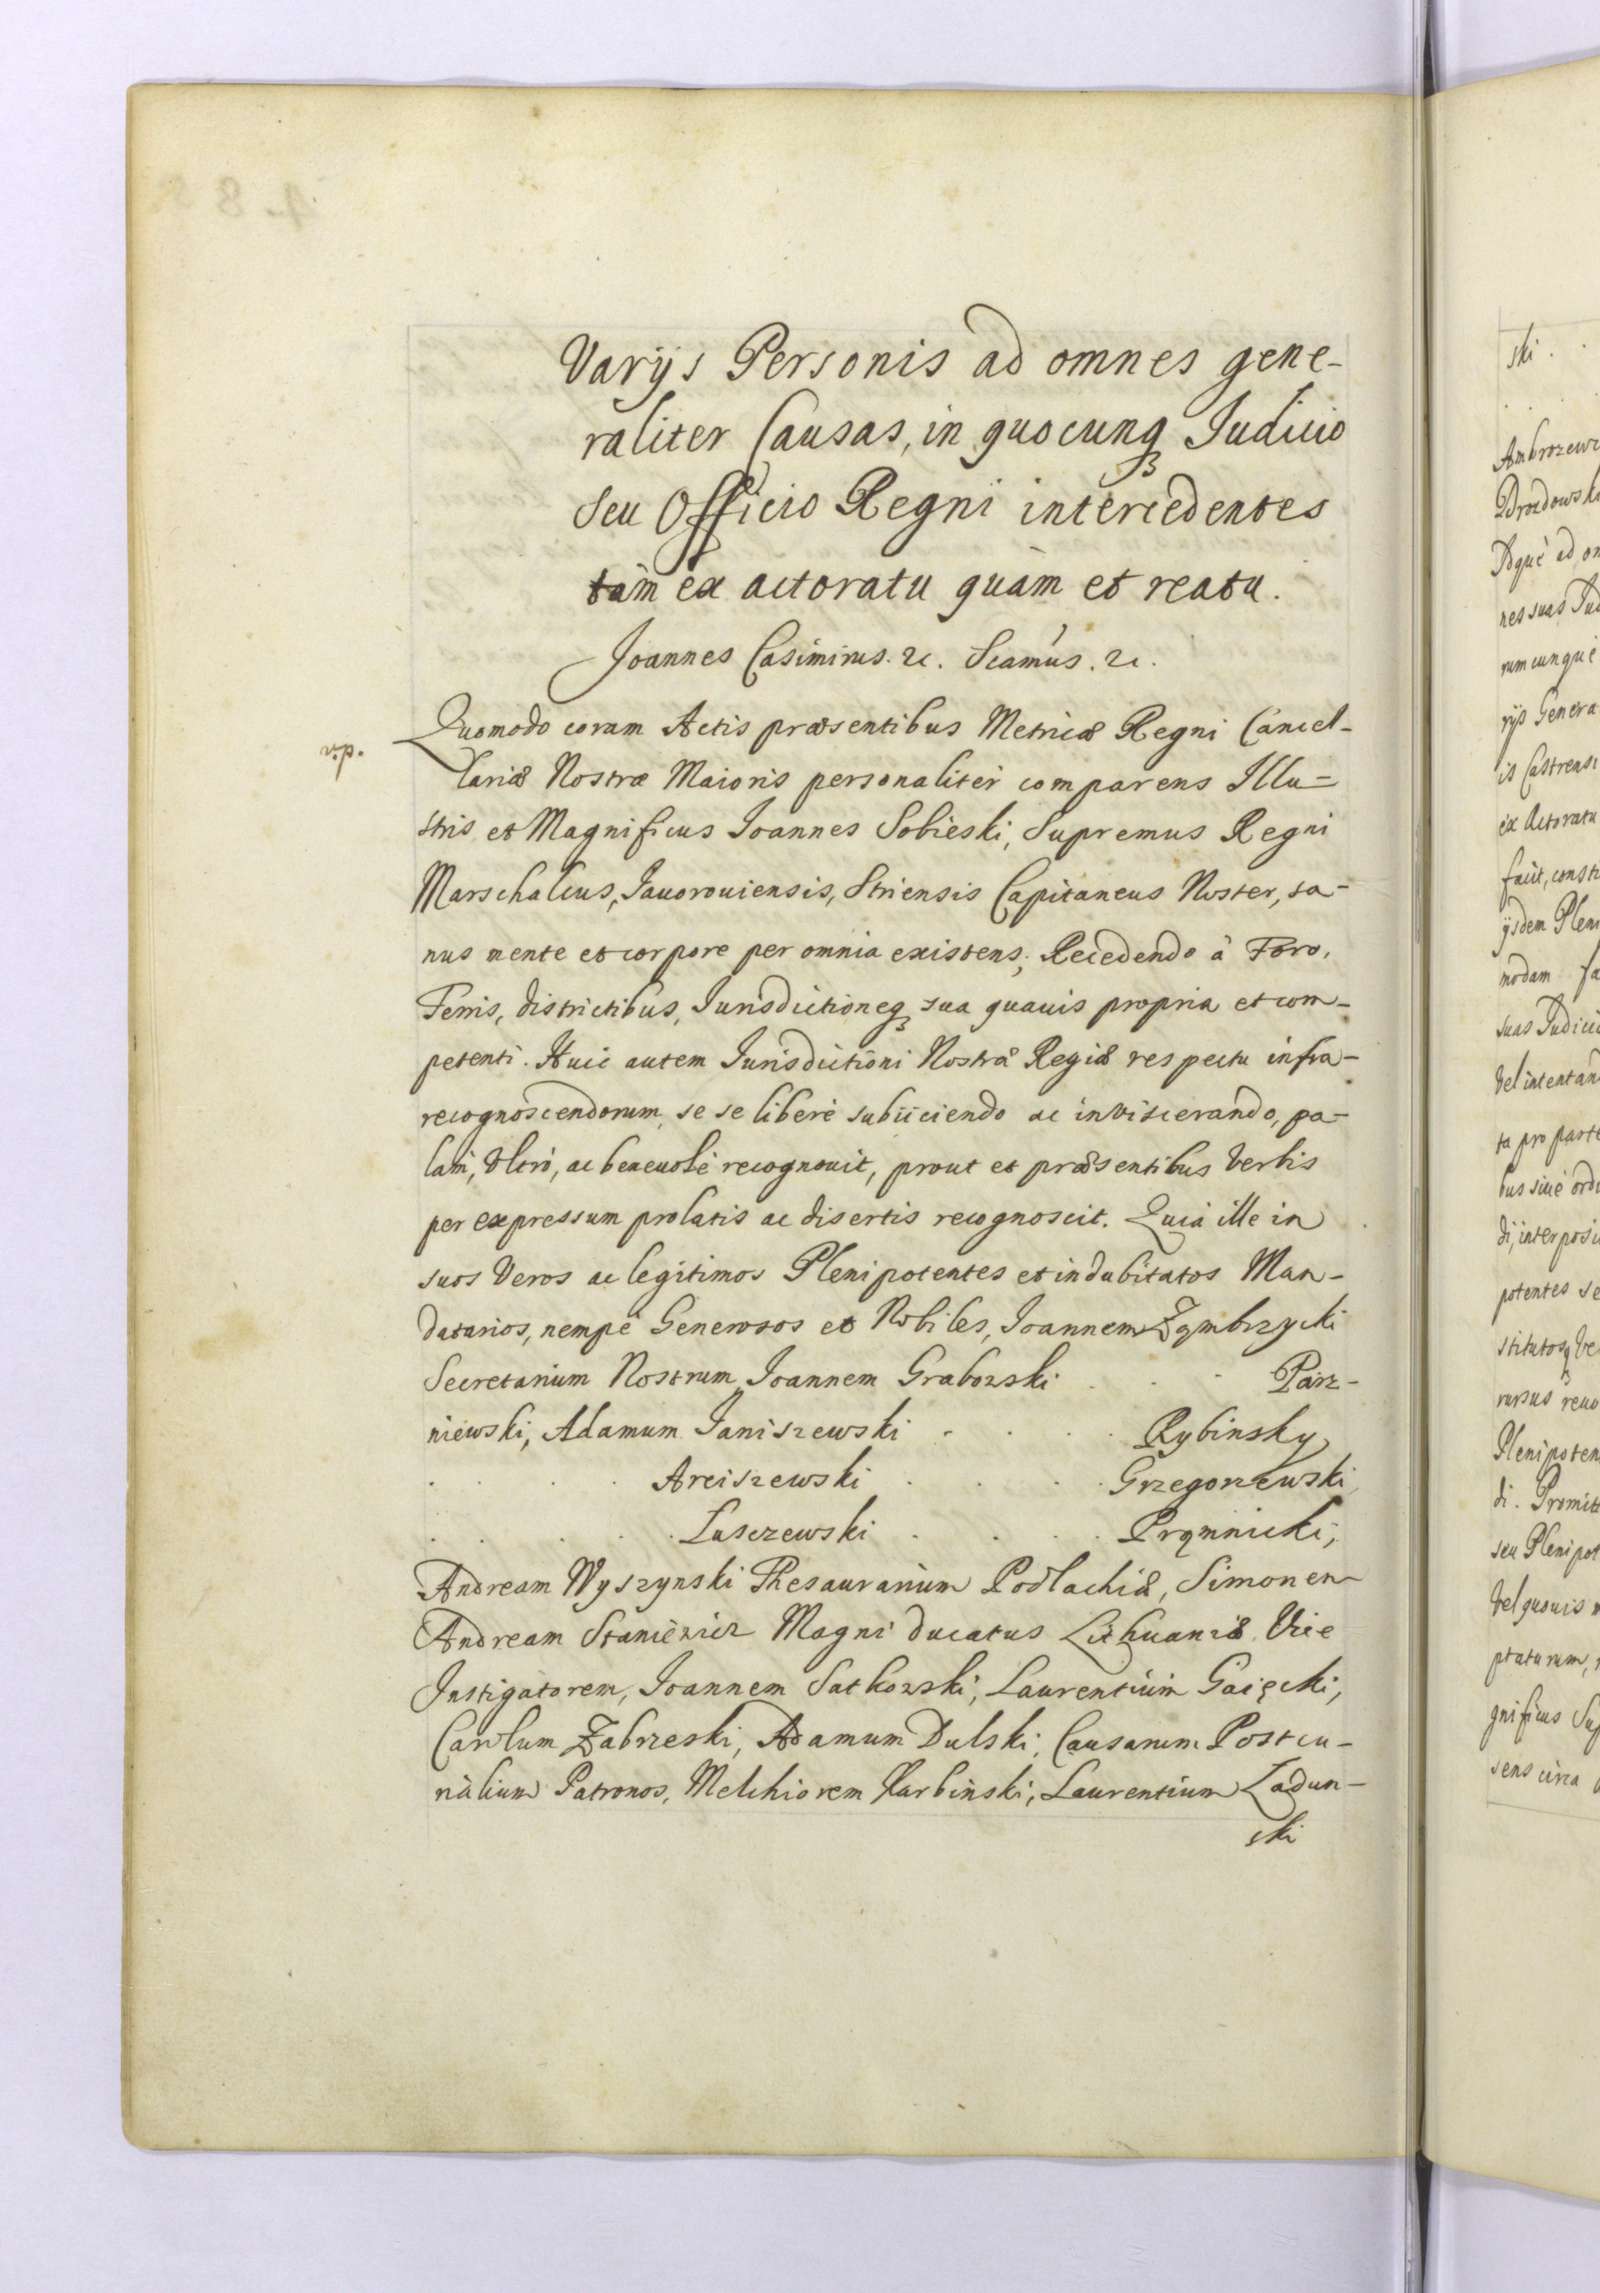 Varijs Personis ad omnes gene-
raliter Causas, in quocunqȝ Judicio
seu Officio Regni intercedentes
tàm ex actoratu quàm et reatu.
Joannes Casimirus. &c. Seamus. &c.
Quomodo coram Actis præsentibus Metricæ Regni Cancel-
v.p.
lariæ Nostræ Maioris personaliter comparens Illu-
stris et Magnificus Joannes Sobieski, Supremus Regni
Marschalcus, Jauorouiensis, Striensis Capitaneus Noster, sa-
nus mente et corpore per omnia existens; Recedendo à Foro,
Terris, districtibus, Jurisdictioneqȝ sua quauis propria et com-
petenti. Huic autem Jurisdictioni Nostræ Regiæ respectu infra-
recognoscendorum se se liberè subiiciendo ac inviscerando, pa-
lam, Vltrò, ac beneuolè recognouit, prout et præsentibus Verbis
per expressum prolatis ac disertis recognoscit. Quia ille in
suos Veros ac legitimos Plenipotentes et indubitatos Man-
datarios, nempè Generosos et Nobiles, Joannem Zembrzycki
Secretarium Nostrum, Joannem Grabowski . . . Parz-
niewski, Adamum Janiszewski . . . . Rybinsky
. . . . Areiszewski . . . . Grzegorzewski,
. . . . . Luszewski . . . . Pręmnicki,
Andream Wyszynski Thesaurarium Podlachiæ, Simonem
Andream Staniewicz Magni ducatus Lithuaniæ Vice
Instigatorem, Joannem Satkowski, Laurentium Gaięcki,
Carolum Zabrzeski, Adamum Dulski, Causarum Postcu-
rialium Patronos, Melchiorem Karbinski, Laurentium Ladun-
ski
ski . .
Ambrozewi
Drozdowski
Idque ad om
nes suas Jud
rumcunque
rijs Genera
is Castrensi
ex Actoratu
facit, consti
ijsdem Pleni
modam fa
suas Judicia
Vel intentan
ta pro parte
bus siue ordi
di, interposi
potentes se
stitutosqȝ Ve
rursus reuo
Plenipoten
di. Promitt
seu Plenipot
Vel quouis m
ptaturum,
gnificus Sup
sens circa